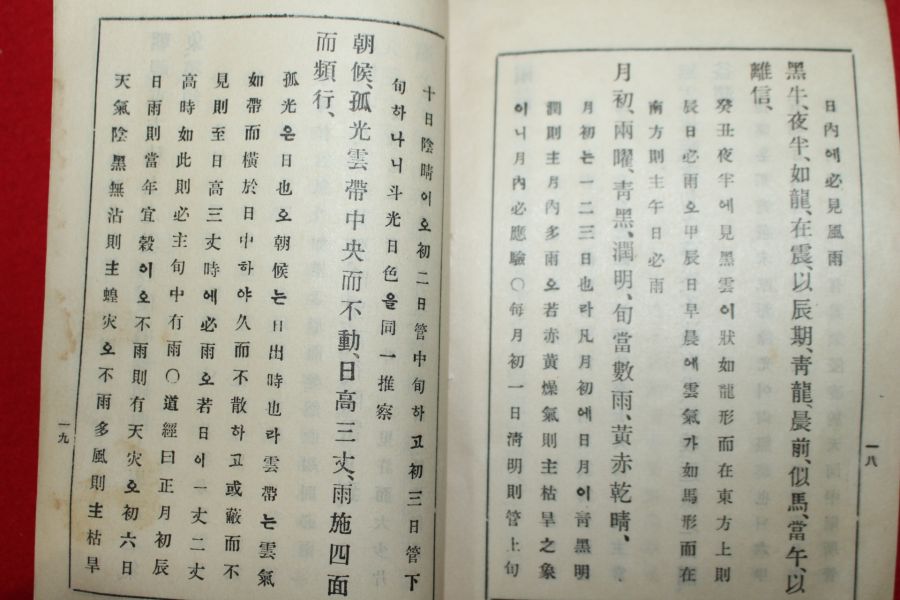 日內에必見風雨
黑牛、夜半、如龍、在震、以辰期、靑龍、晨前、似馬、當午、以
離信、
癸丑夜半에見黑雲이狀如龍形而在東方上則
辰日必雨오甲辰日早晨에雲氣가如馬形而在
南方則主午日必雨
月初、兩曜、靑黑、潤明、旬當數雨、黃赤乾晴、
月初는一二三日也라凡月初에日月이靑黑明
潤則主月內多雨오若赤黃燥氣則主枯旱之象
이니月內必應驗〇每月初一日淸明則管上旬
一八
十日陰晴이오初二日管中旬하고初三日管下
旬하나니斗光日色을同一推察
朝候、孤光雲帶中央而不動、日高三丈、雨施四面
而頻行、
孤光은日也오朝候는日出時也라雲帶는雲氣
如帶而橫於日中하야久而不散하고或蔽而不
見則至日高三丈時에必雨오若日이一丈二丈
高時如此則必主旬中有雨〇道經曰正月初辰
日雨則當年宜穀이오不雨則有天灾오初六日
天氣陰黑無沾則主蝗灾오不雨多風則主枯旱
一九